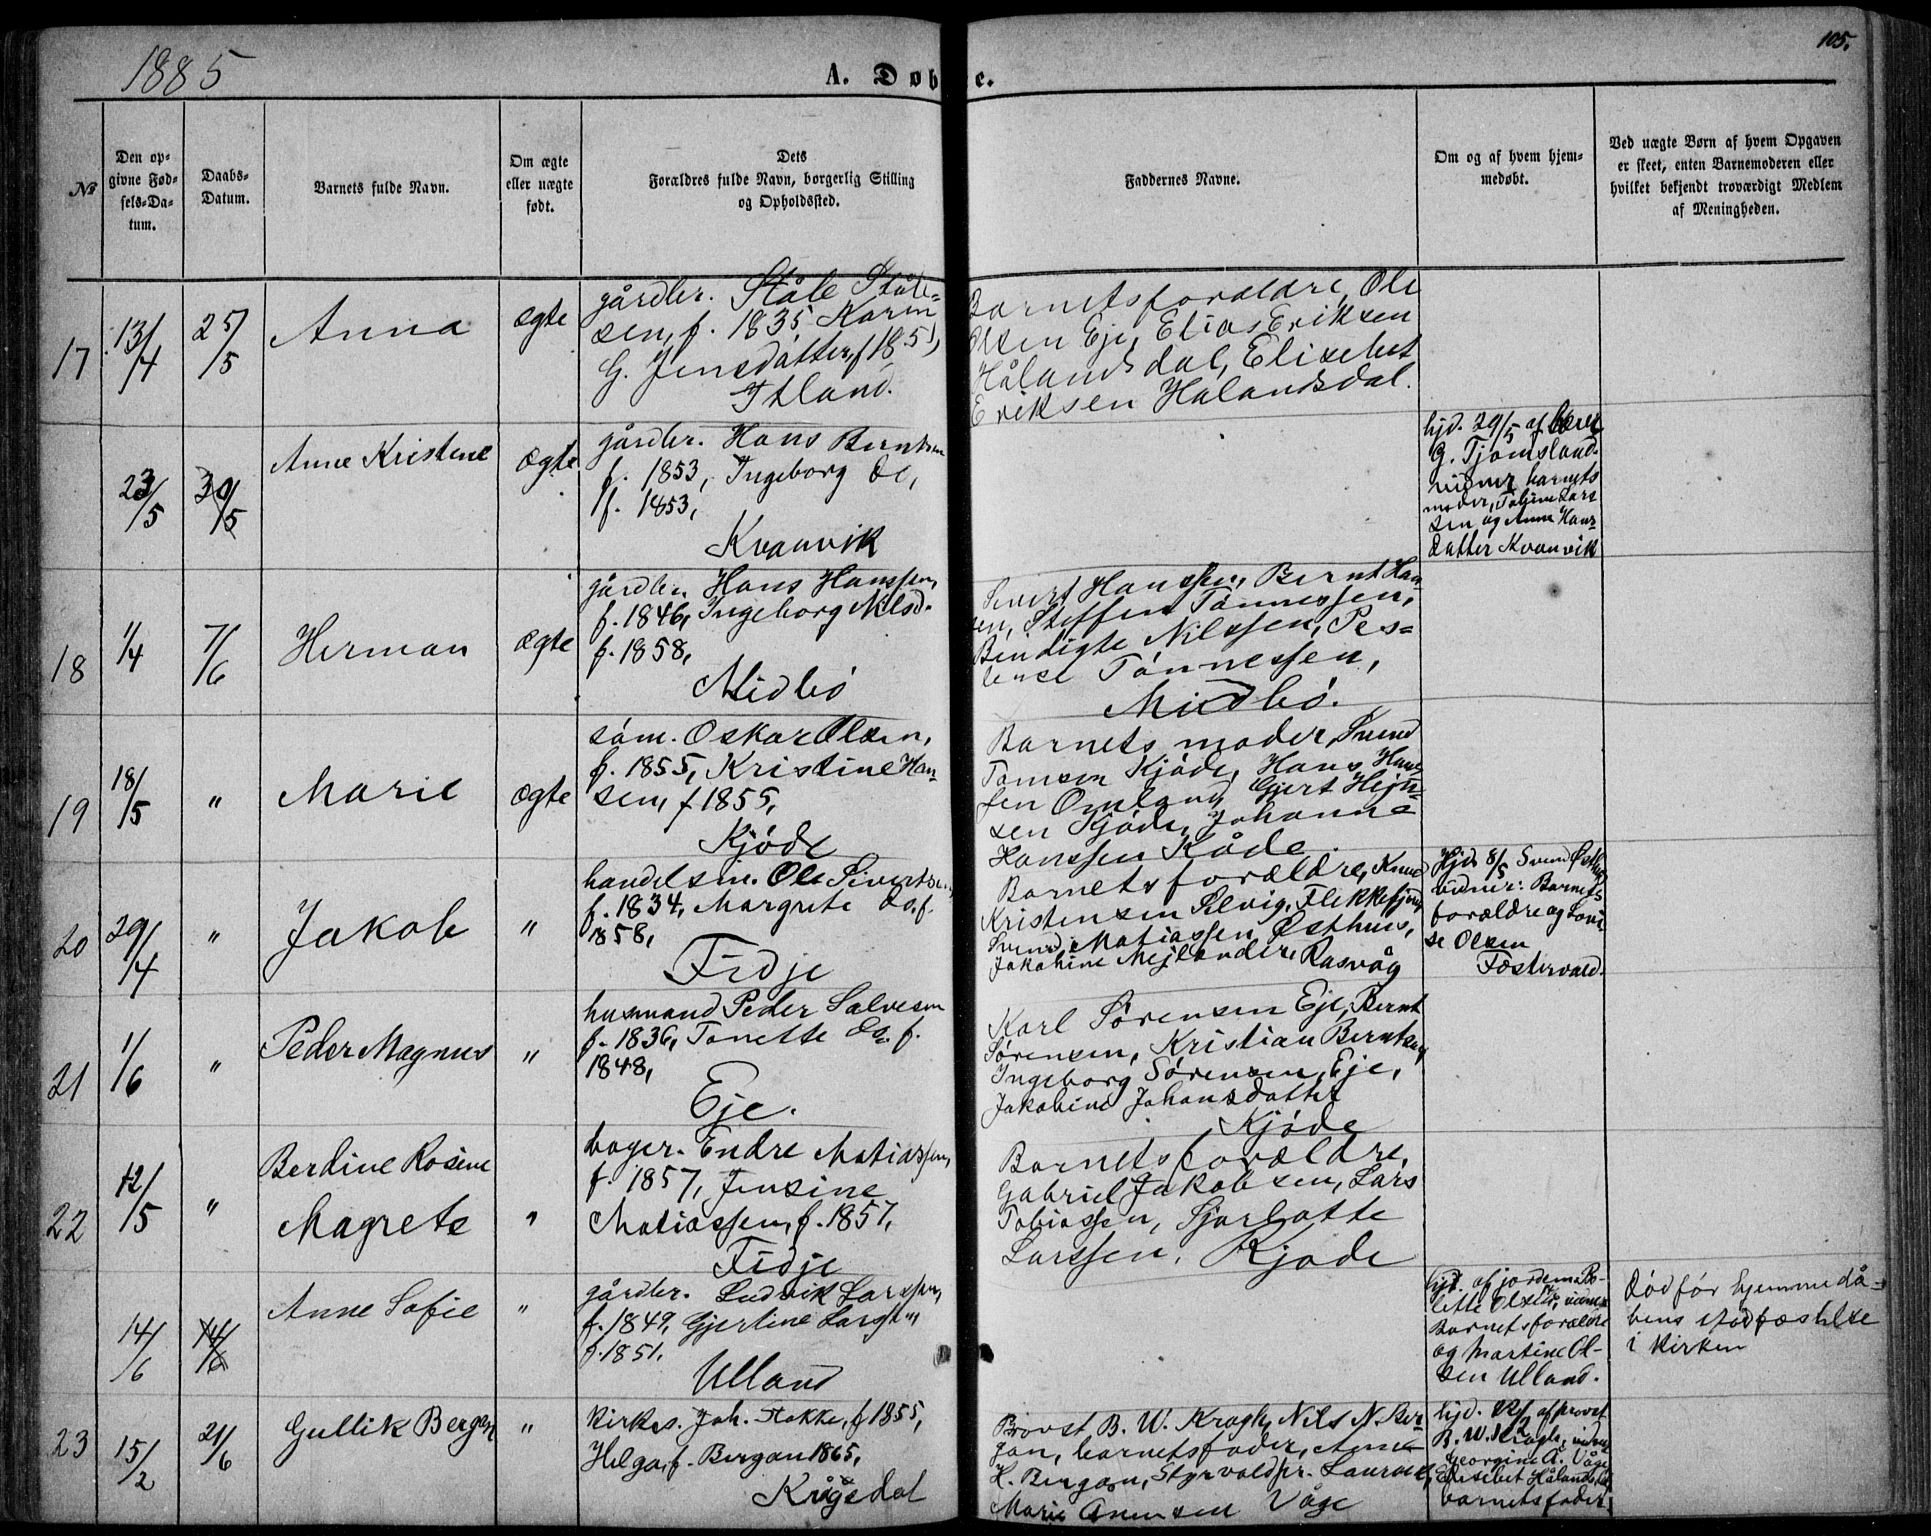 1885
A. Døb e.
105.
№
Den op-
givne Fød-
sels-Da-
tum.
Daabs-
Datum.
Barnets fulde Navn.
Om ægte
eller uægte
født.
Dets
Forældres fulde Navn, borgerlig Stilling
og Opholdssted.
Faddernes Navne.
Om og af hvem hjem-
medøbt.
Ved uægte Børn af hvem Opgaven
er skeet, enten Barnemoderen eller
hvilket bekjendt troværdigt Medlem
af Meningheden.
17
13/4
25/5
Anna
ægte
gårdbr. Ståle Ståle-
sen, f. 1835 Karen
G. Jensdatter, f 1851,
Itland.
Barnetsforældre, Ole
Olsen Eje, Elias Eriksen
Hålandsdal, Elisebet
Eriksen Hålandsdal.
23/5
30/5
Anne Kristene
ægte
gårdbr. Hans Berntsen
f. 1853, Ingeborg do,
f. 1853,
Kvanvik
hjd. 29/5 af
G. Tjomsland.
vidner barnets
moder, Tobine Lars
sen og Anne Hans-
datter Kvanvik
18
1/4
7/6
Herman
ægte
gårdbr. Hans Hanssen,
f. 1846, Ingeborg Nilsd.
f. 1858,
Midbó
Sivert Hanssen, Bernt Han
sen, Steffen Tønnessen,
Bendigte Nilssen, Pes-
Tónnessen,
Midbó.
19
18/5
"
Marie
ægte
sóm. Oskar Olsen,
f. 1855, Kristine Han-
sen, f 1855,
Kjóde
Barnets moder, Svend
Tomsen Kjóde, Hans Hans
sen Omland, Gjert Hejn-
sen Kjóde, Johanne
Hanssen Kåde.
20
29/4
"
Jakob
"
handelsm. Ole Sivertsen,
f. 1834, Margrete do. f.
1858,
Fidje
Barnetsforældre, Knud
Kristensen Selvig, Flekkefjord,
Svend Matiassen Østhus,
Jakobine Mejlander Rasvåg
Hjd 8/5 Svend Østhus
vidner: Barnets
forældre og Lovi
se Olsen
Fostervold.
21
1/6
"
Peder Magnus
"
husmand Peder Salvesen
f. 1836, Tonette do. f.
1848,
Eje.
Karl Sörensen Eje, Bernt
Sörensen, Kristian Berntsen
Ingeborg Sörensen, Eje,
Jakobine Johansdatter
Kjóde
22
12/5
"
Berdine Rosine
Magrete
"
bager. Endre Matiassen,
f. 1857, Jensine
Matiassen, f. 1857,
Fidje
Barnetsforældre,
Gabriel Jakobsen, Lars
Tobiassen, Sjarlotte
Larssen, Kjode
14/6
14/6
Anne Sofie
"
gårdbr. Ludvik Larssen,
f. 1849, Gjertine Larss"
f. 1851.
Ulland
hjd. af jordem Bo-
lette Olsen, vidner
Barnetsforældre
og Martine Ol-
sen Ulland.
død før hjemmedå-
bens stadfæstelse
i kirken
23
15/2
21/6
Gullik Bergan
"
kirkes. Joh. Flokke, f 1855,
Helga, f. Bergan 1865,
Krågedal
Provst B. W. Kragh, Nils N. Ber-
gan, barnetsfader, Anne
H. Bergan, Laurine
Marie Våge
hjd. af provst
B. W. Kragh, vidner
Georgine A. Våge
Elisebet Hålandsdal
barnetsfader.